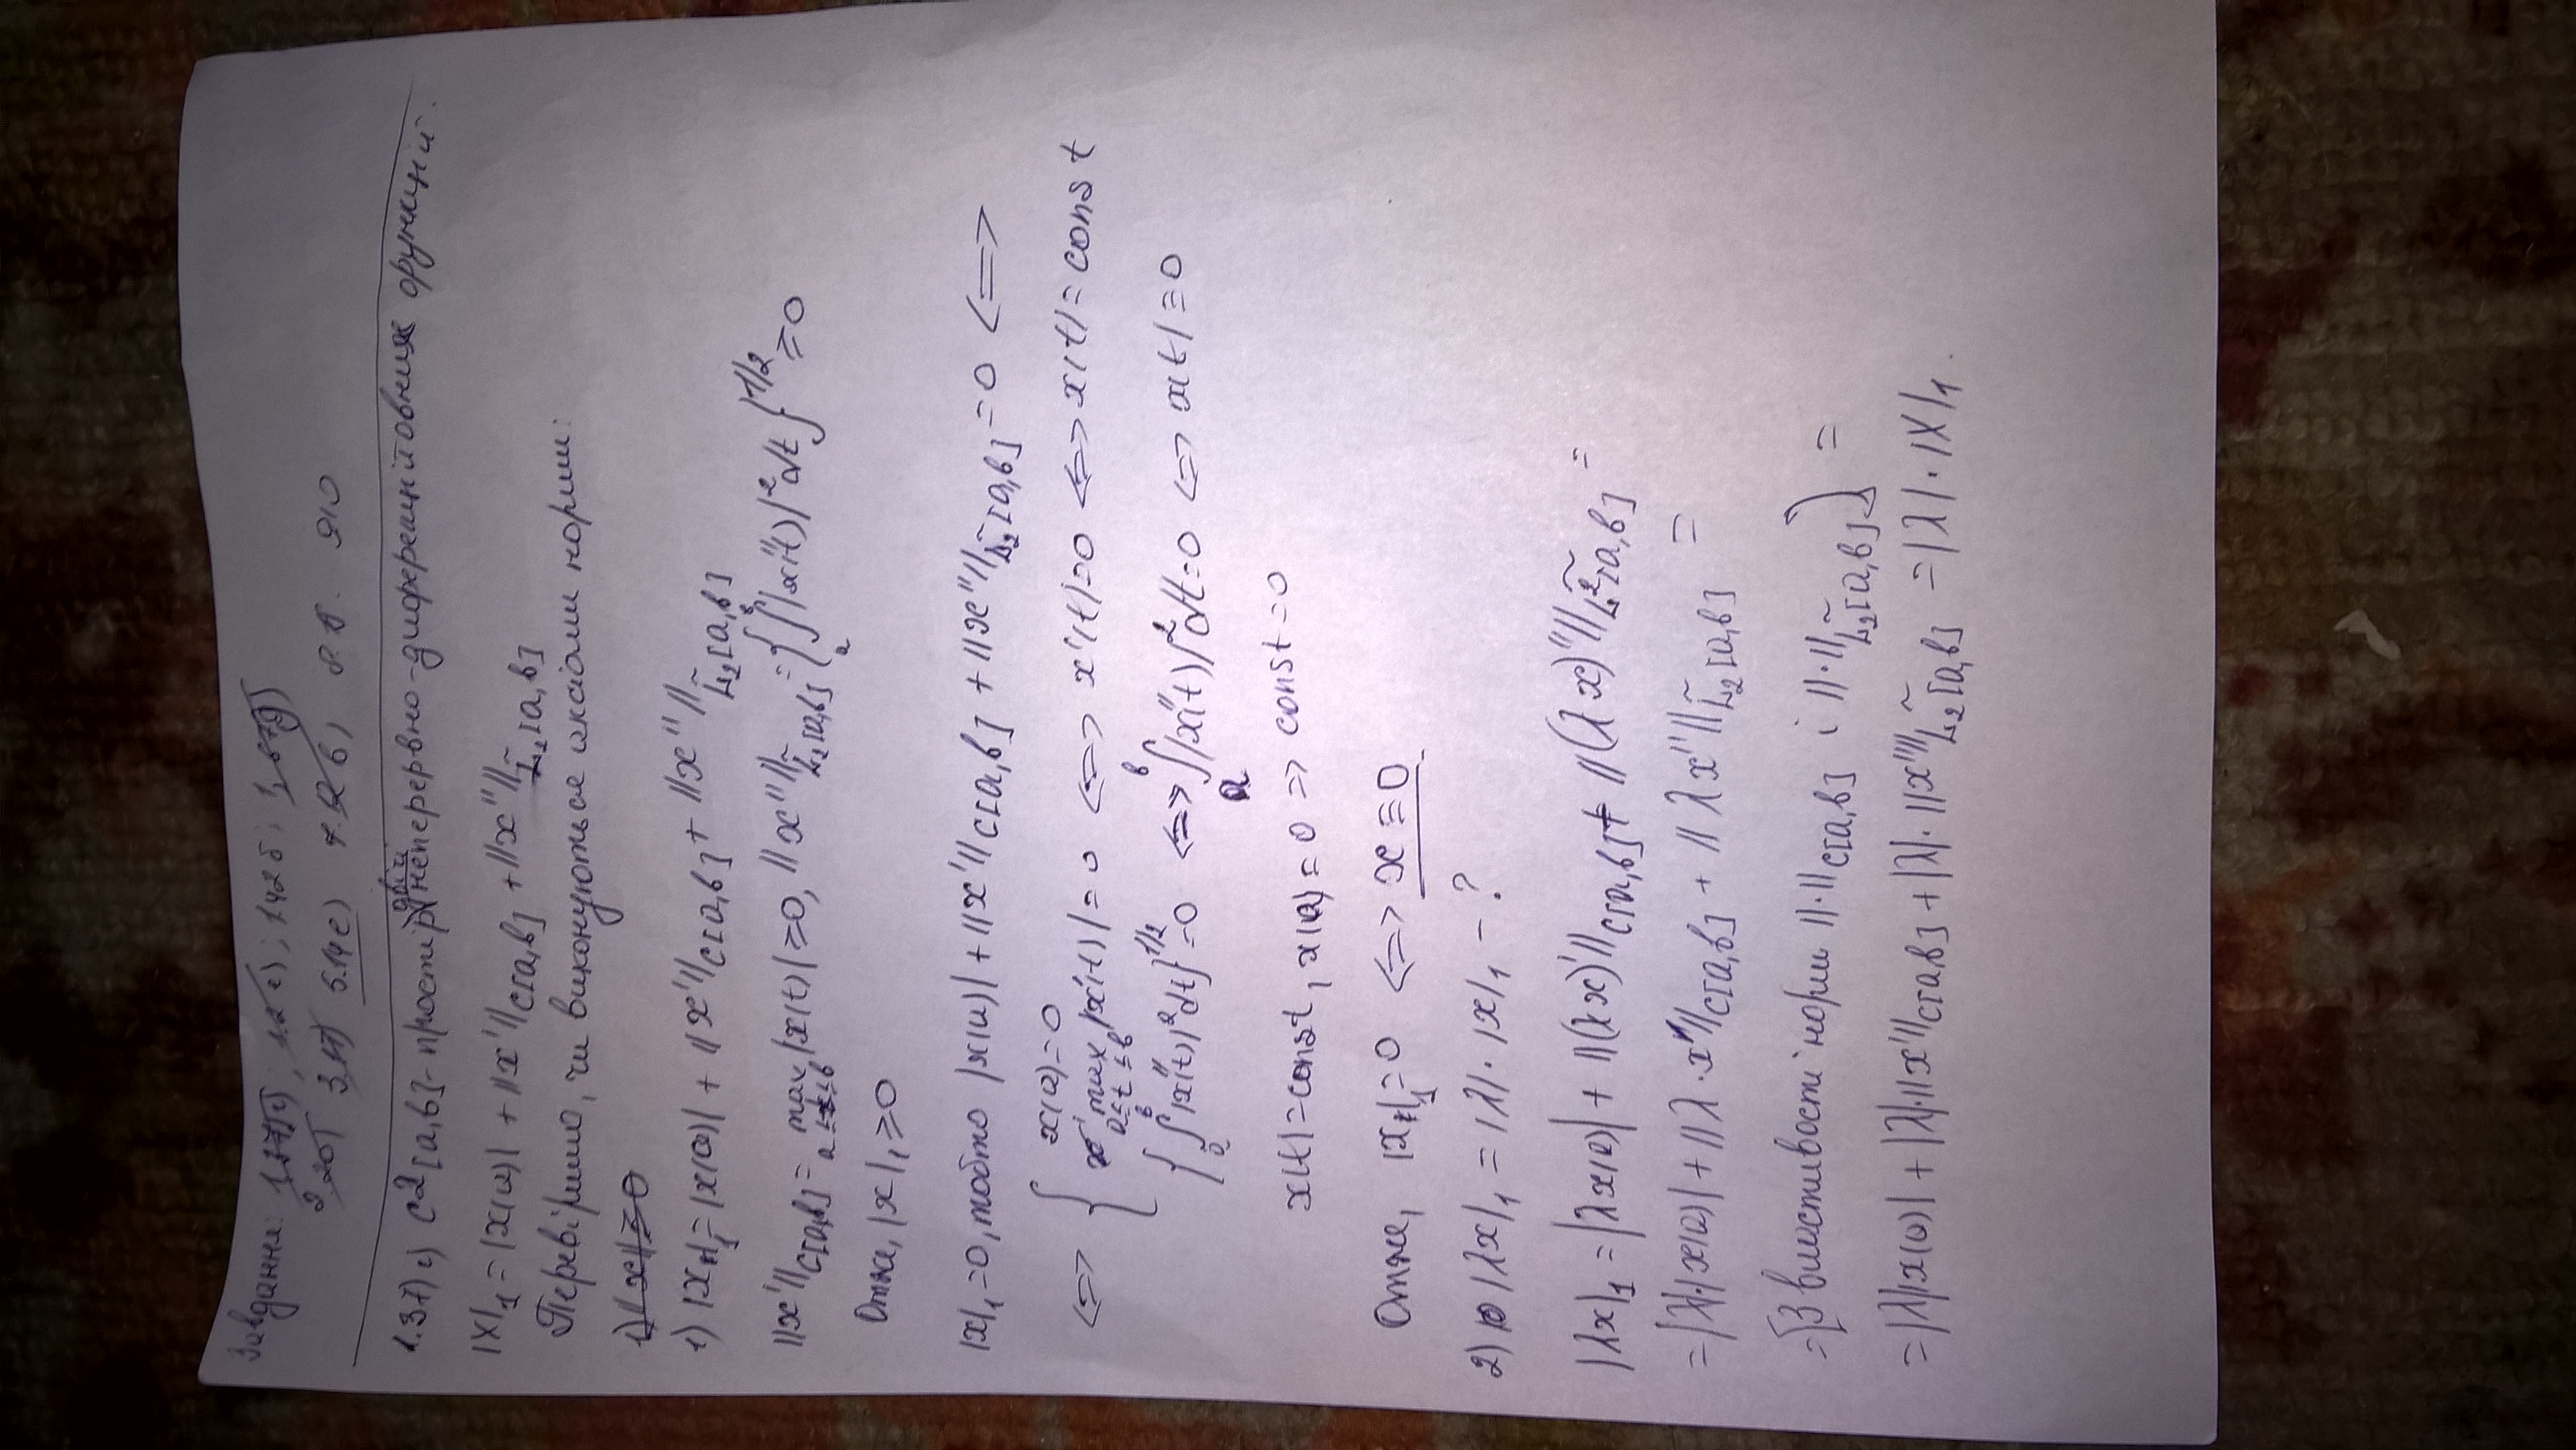 Завдання: 1.37 е); 1.2 е); 1.42 б; 1.67д)
2.20 3.17) 5.14 е) 7.12 в) 8.15. 9.10
1.37) е) C²[a,b] - простір двічі неперервно-диференційовних функцій.
|X|₁ = |x(a)| + ||x'||C[a,b] + ||x''||L̃₂[a,b]
Перевіримо, чи виконуються аксіоми норми:
1) ||x|| ≥ 0
1) |x|₁ = |x(a)| + ||x'||C[a,b] + ||x''||L̃₂[a,b]
||x'||C[a,b] = max a≤t≤b |x(t)| ≥ 0, ||x''||L̃₂[a,b] = {∫ₐᵇ |x''(t)|² dt}^1/2 ≥ 0
Отже, |x|₁ ≥ 0
|x|₁ = 0, тобто |x(a)| + ||x'||C[a,b] + ||x''||L̃₂[a,b] = 0 <=>
<=> { x(a) = 0
max a≤t≤b |x'(t)| = 0 <=> x'(t) = 0 <=> x(t) = const
{∫ₐᵇ |x''(t)|² dt}^1/2 = 0 <=> ∫ₐᵇ |x''(t)|² dt = 0 <=> x(t) ≡ 0
x(t) = const, x(a) = 0 => const = 0
Отже, |x|₁ = 0 <=> x ≡ 0
2) |λx|₁ = |λ|·|x|₁ - ?
|λx|₁ = |λx(a)| + ||(λx)'||C[a,b] + ||(λx)''||L̃₂[a,b] =
= |λ|·|x(a)| + ||λ·x'||C[a,b] + ||λx''||L̃₂[a,b] =
= [З властивості норм ||·||C[a,b] і ||·||L̃₂[a,b]] =
= |λ||x(a)| + |λ|·||x'||C[a,b] + |λ|·||x''||L̃₂[a,b] = |λ|·|X|₁.